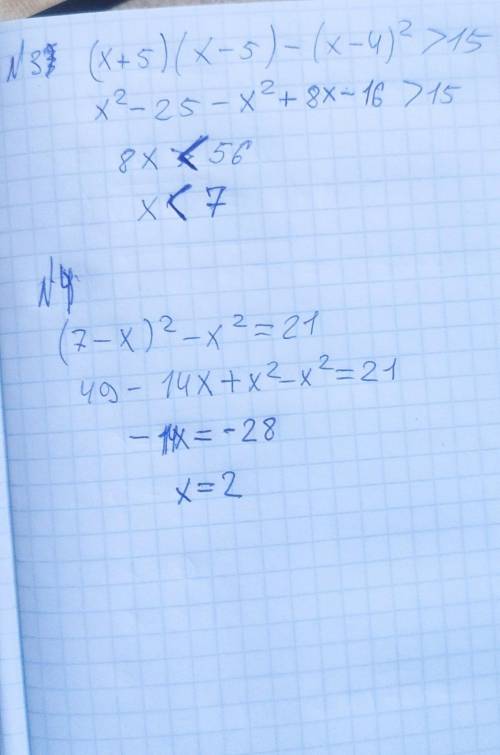 N3 (x+5)(x-5)-(x-4)²>15
x²-25-x²+8x-16>15
8x<56
x<7
N4
(7-x)²-x²=21
49-14x+x²-x²=21
-14x=-28
x=2